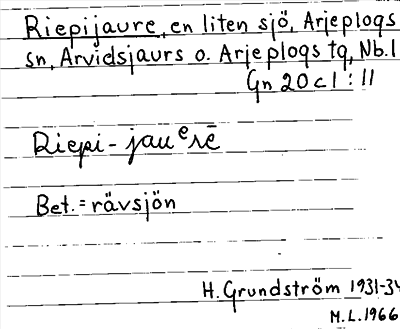 Riepijaure, en liten sjö, Arjeplogs
sn, Arvidsjaurs o. Arjeplogs tg, Nb.l
Gn 20 c 1 : 11
Riepi-jauᵉrē
Bet. = rävsjön
H. Grundström 1931-34
M.L. 1966